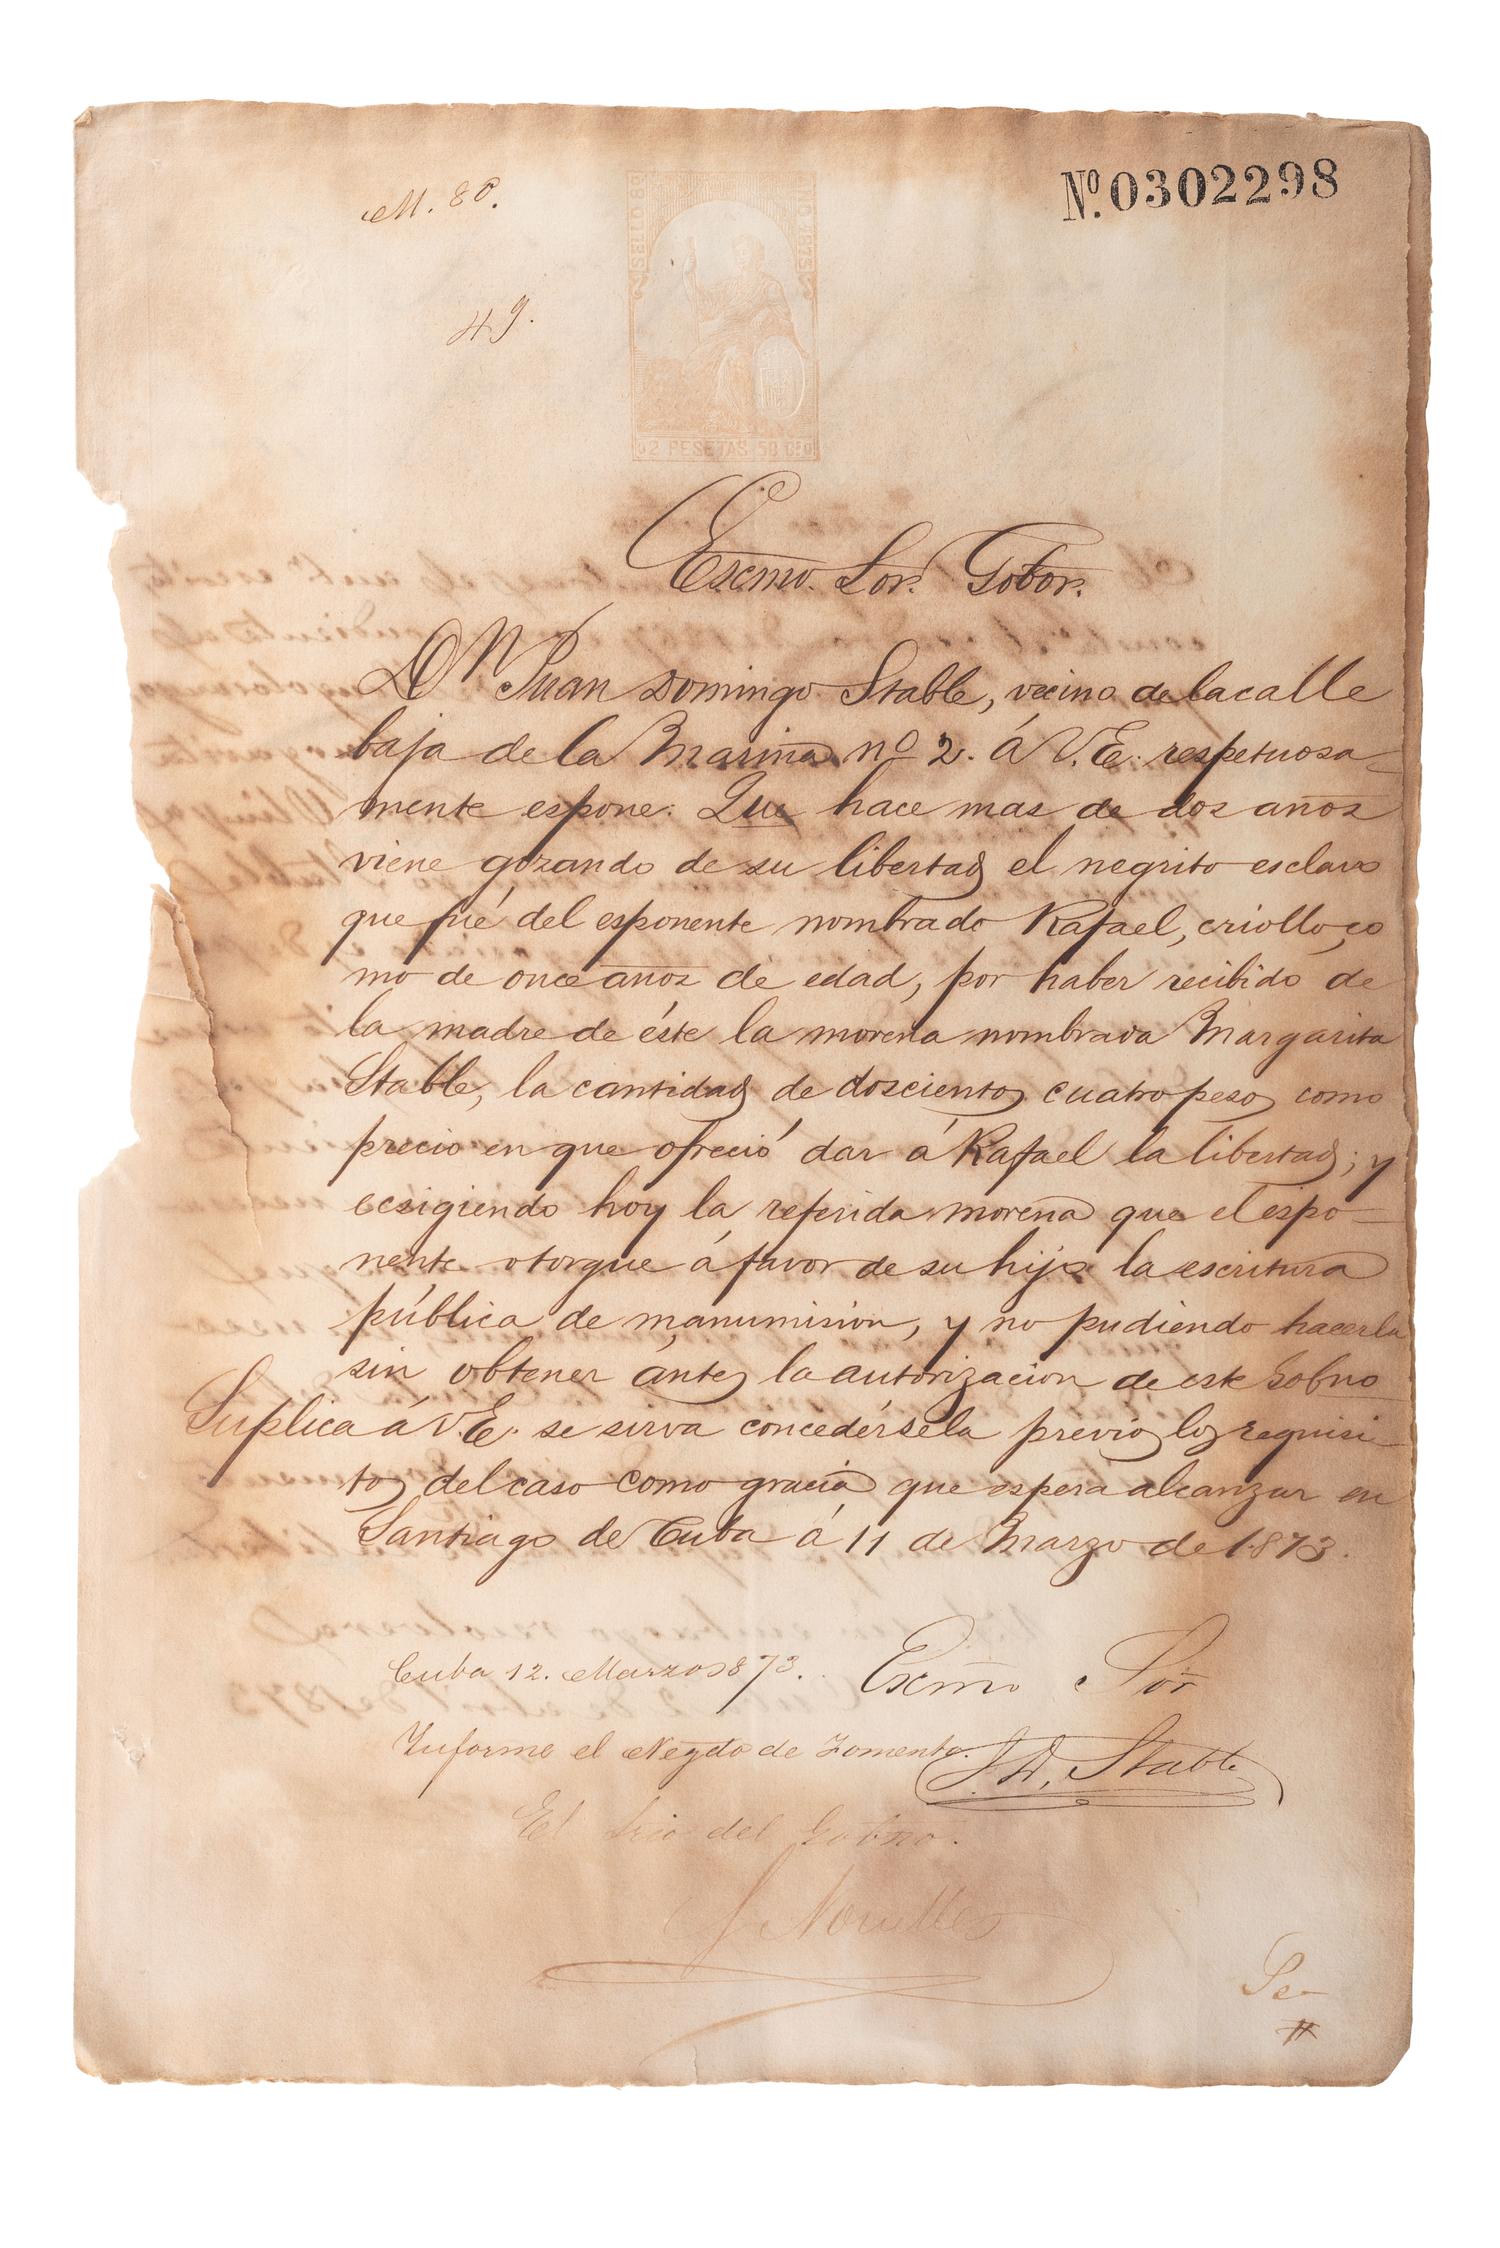 M. 80.
Nº. 0302298
49.
SELLO 6º
AÑO 1873
2 PESETAS 50 CEO
Escmo. Sor. Gobor.
Dn Juan Domingo Stable, vecino de la calle
baja de la Marina nº 2. á V.E. respetuosa-
mente espone: Que hace mas de dos años
viene gozando de su libertad el negrito esclavo
que fué del esponente nombrado Rafael, criollo, co
mo de once años de edad, por haber recibido de
la madre de éste la morena nombrada Margarita
Stable, la cantidad de doscientos cuatro pesos como
precio en que ofreció dar á Rafael la libertad; y
ecsigiendo hoy la referida morena que el espo-
nente otorgue á favor de su hijo la escritura
pública de manumision, y no pudiendo hacerla
sin obtener ántes la autorizacion de este Gobno
Suplica á V.E. se sirva concedérsela prévios los requisi-
tos del caso como gracia que espera alcanzar en
Santiago de Cuba á 11 de Marzo de 1873.
Cuba 12. Marzo 1873.
Escmo Sor
Informe el Negdo de Fomento.
J. D. Stable
El Srio del Gobno.